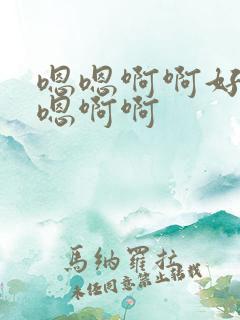 嗯嗯啊啊好
嗯啊啊
馬納羅拉
未經同意禁止轉載